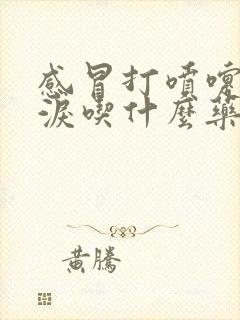 感冒打噴嚏
淚喫什麼藥
黃騰